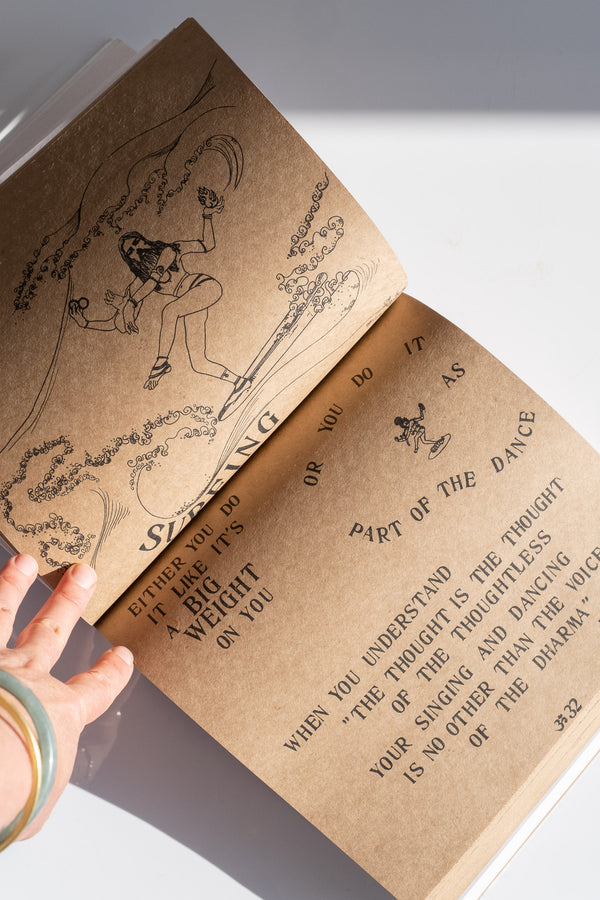 SURFING
EITHER YOU DO
IT LIKE IT'S
A BIG
WEIGHT
ON YOU
OR YOU DO IT AS
PART OF THE DANCE
WHEN YOU UNDERSTAND
"THE THOUGHT IS THE THOUGHT
OF THE THOUGHTLESS
YOUR SINGING AND DANCING
IS NO OTHER THAN THE VOICE
OF THE DHARMA"
ॐ 32